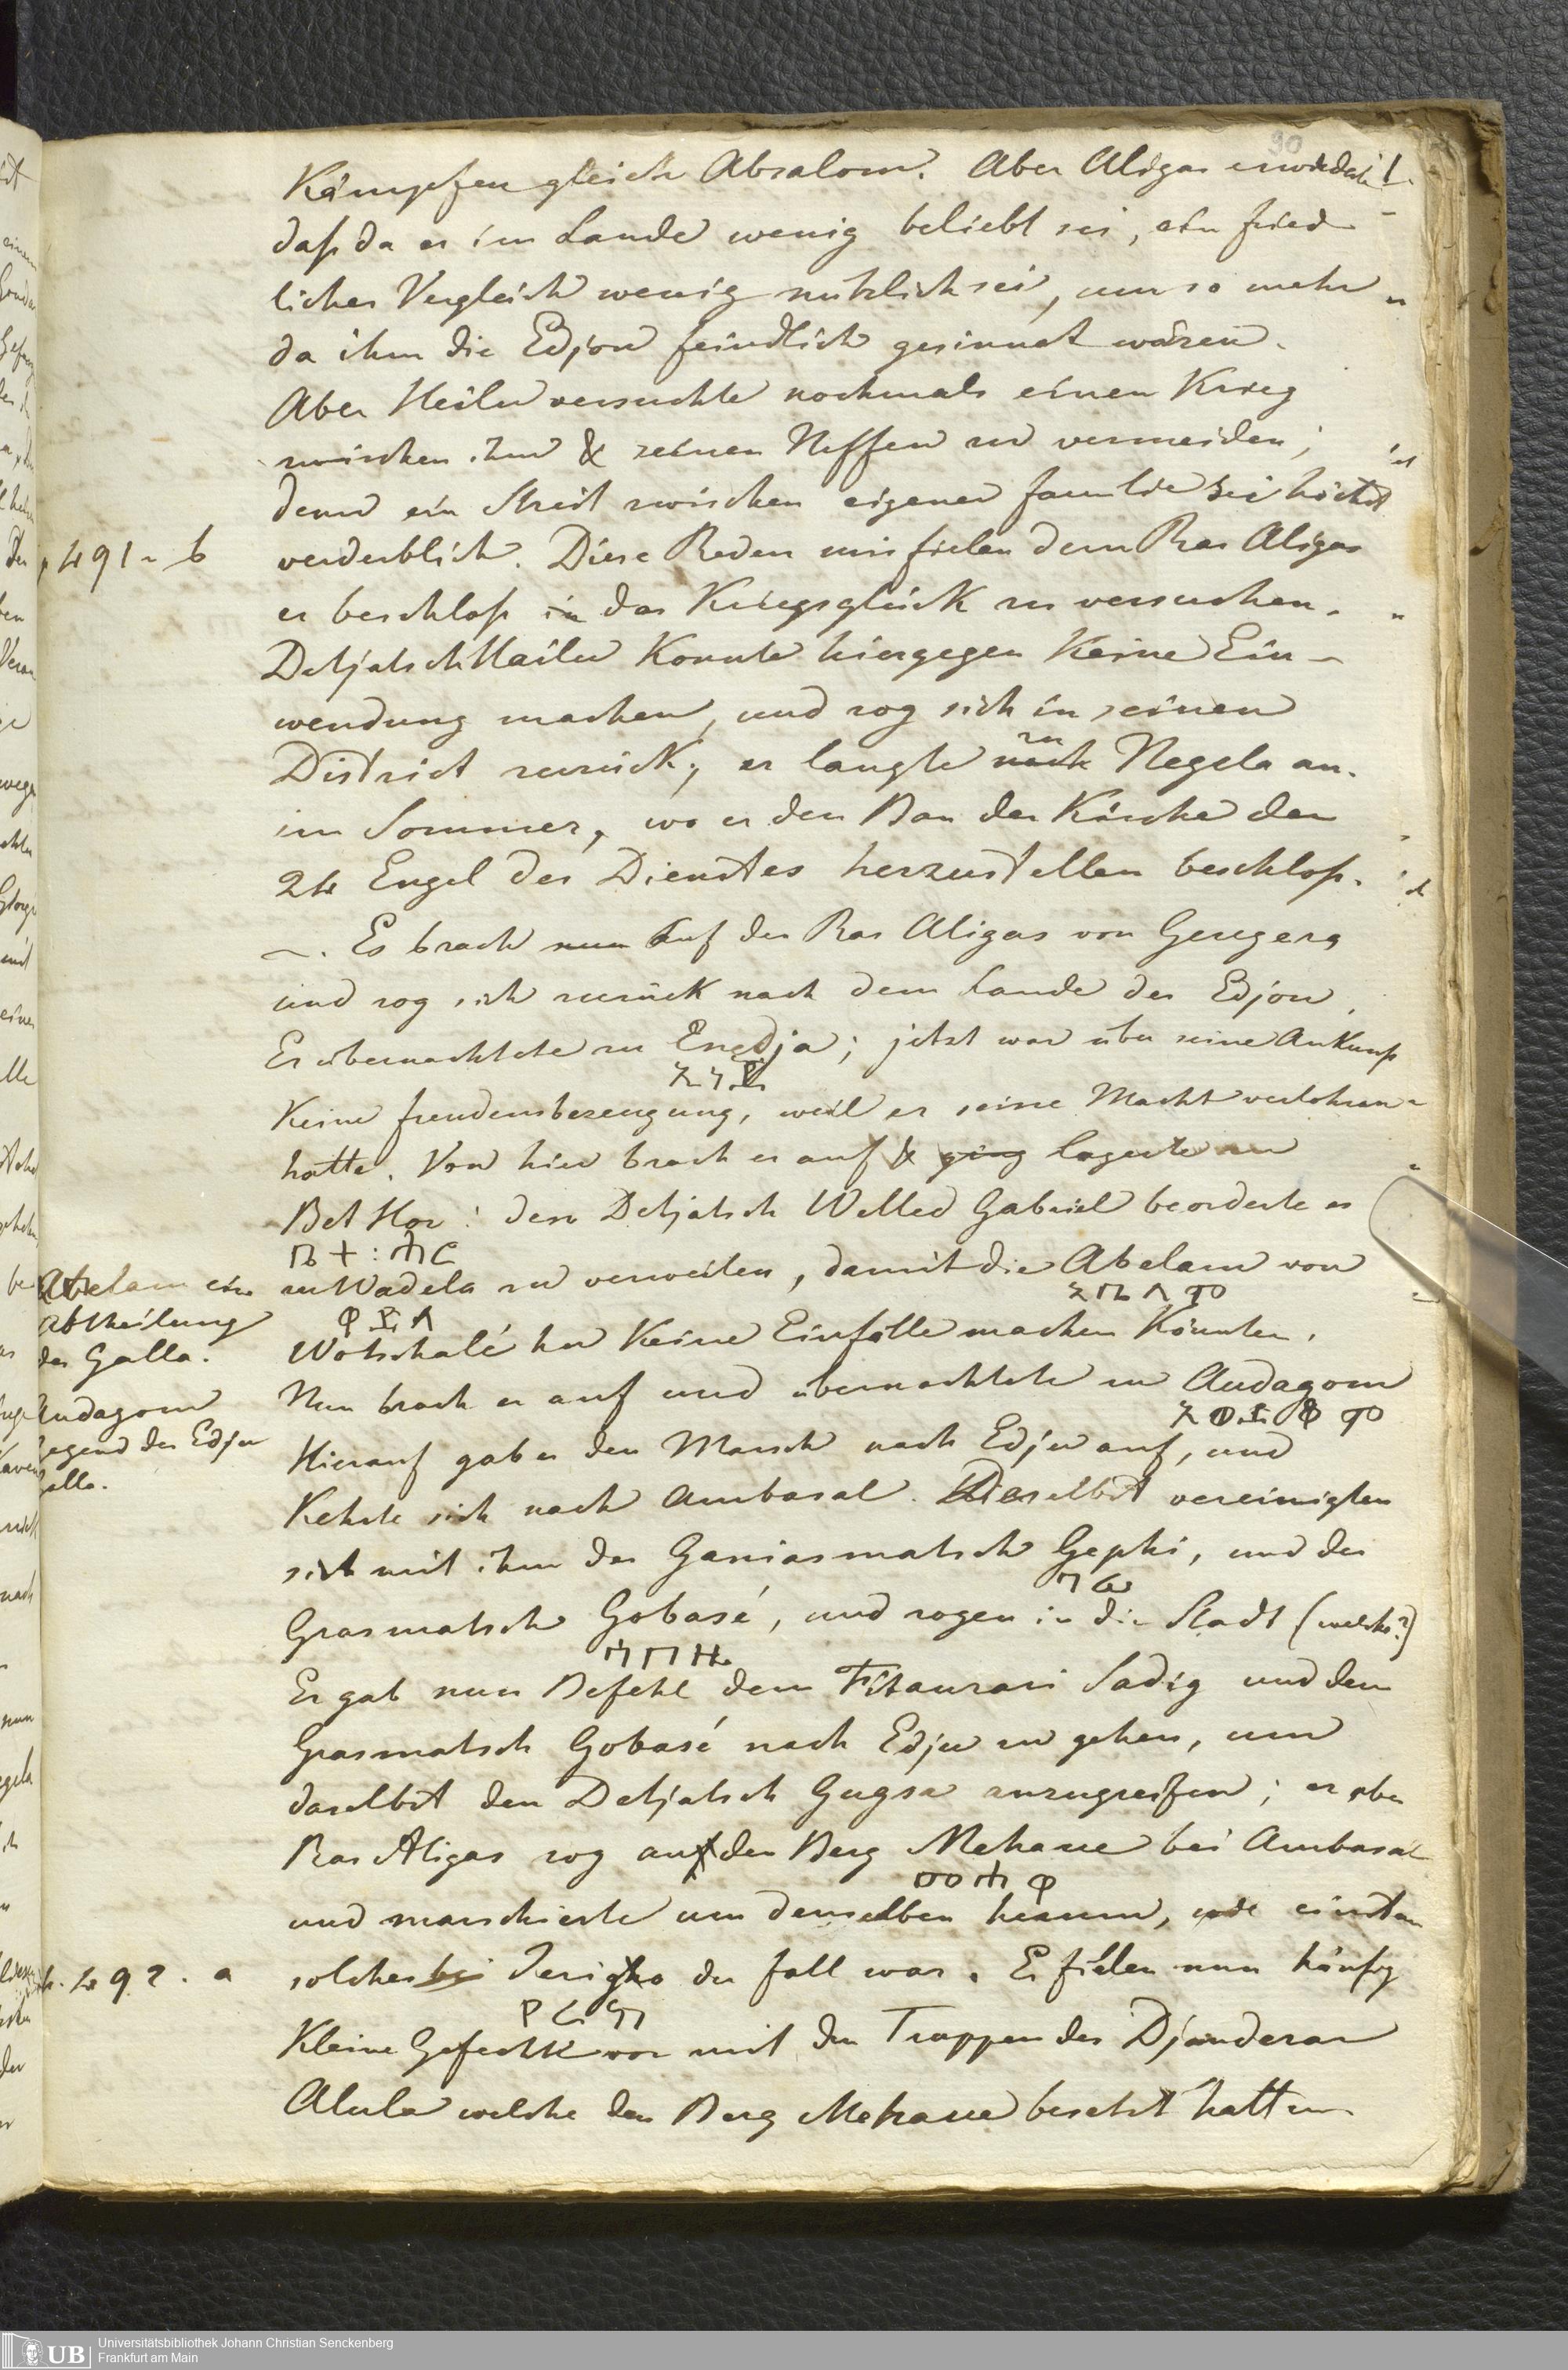 90
Kämpfen gleich Absalom. Aber Aligas erwiederte!
daß da er im Lande wenig beliebt sei, ein fried
licher Vergleich wenig nützlich sei, um so mehr
da ihm die Edjou feindlich gesinnet wären.
Aber Heilu versuchte nochmals einen Krieg
zwischen ihm & seinen Neffen zu vermeiden;
denn ein Streit zwischen eigener Familie sei höchst
p 491 - b verderblich. Diese Reden misfielen dem Ras Aligas
er beschloß in das Kriegsglück zu versuchen.
Detjatsch Hailu konnte hiergegen keine Ein-
wendung machen, und zog sich in seinen
District zurück; er langte nach zu Negela an.
im Sommer, wo er den Bau der Kirche der
24 Engel des Dienstes herzustellen beschloß.
Es brach nun auf der Ras Aligas von Geregera
und zog sich zurück nach dem Lande der Edjou.
Er übernachtete zu Enedja; jetzt war über seine Ankunft
እነዷ
keine Freudensbezeugung, weil er seine Macht verlohren
hatte. Von hier brach er auf & ging lagerte zu
Bet Hor: den Detjatsch Welled Gabriel beorderte er
ቤተ:ሖር
zu Wadela zu verweilen, damit die Abelam von
ዋድላ
አበላም
Abelam eine
Abtheilung
der Galla.
Wotschalé hu keine Einfälle machen könnten.
Nun brach er auf und übernachtete zu Audagom
አውዳጎም
Audagom
Gegend der Edju
Galla.
Hierauf gab er den Marsch nach Edju auf, und
kehrte sich nach Ambasal. Daselbst vereinigten
sich mit ihm der Ganiasmatsch Gephi, und der
ገፊ
Grasmatsch Gobasé, und zogen in die Stadt (welche?)
ጎበዜ
Er gab nun Befehl dem Fitaurari Sadig und dem
Grasmatsch Gobasé nach Edju zu gehen, um
daselbst den Detjatsch Gugsa anzugreifen; er aber
Ras Aligas zog auf den Berg Mehaue bei Ambasal
መሐዋ
und marschierte um denselben herum, wie einsten
p. 492. a solches bei Jerigho der Fall war. Es fielen nun häufig
ያሪኮ
kleine Gefechte vor mit den Truppen des Djanderar
Alula welche den Berg Mehaue besetzt hatten
Universitätsbibliothek Johann Christian Senckenberg
Frankfurt am Main
UB